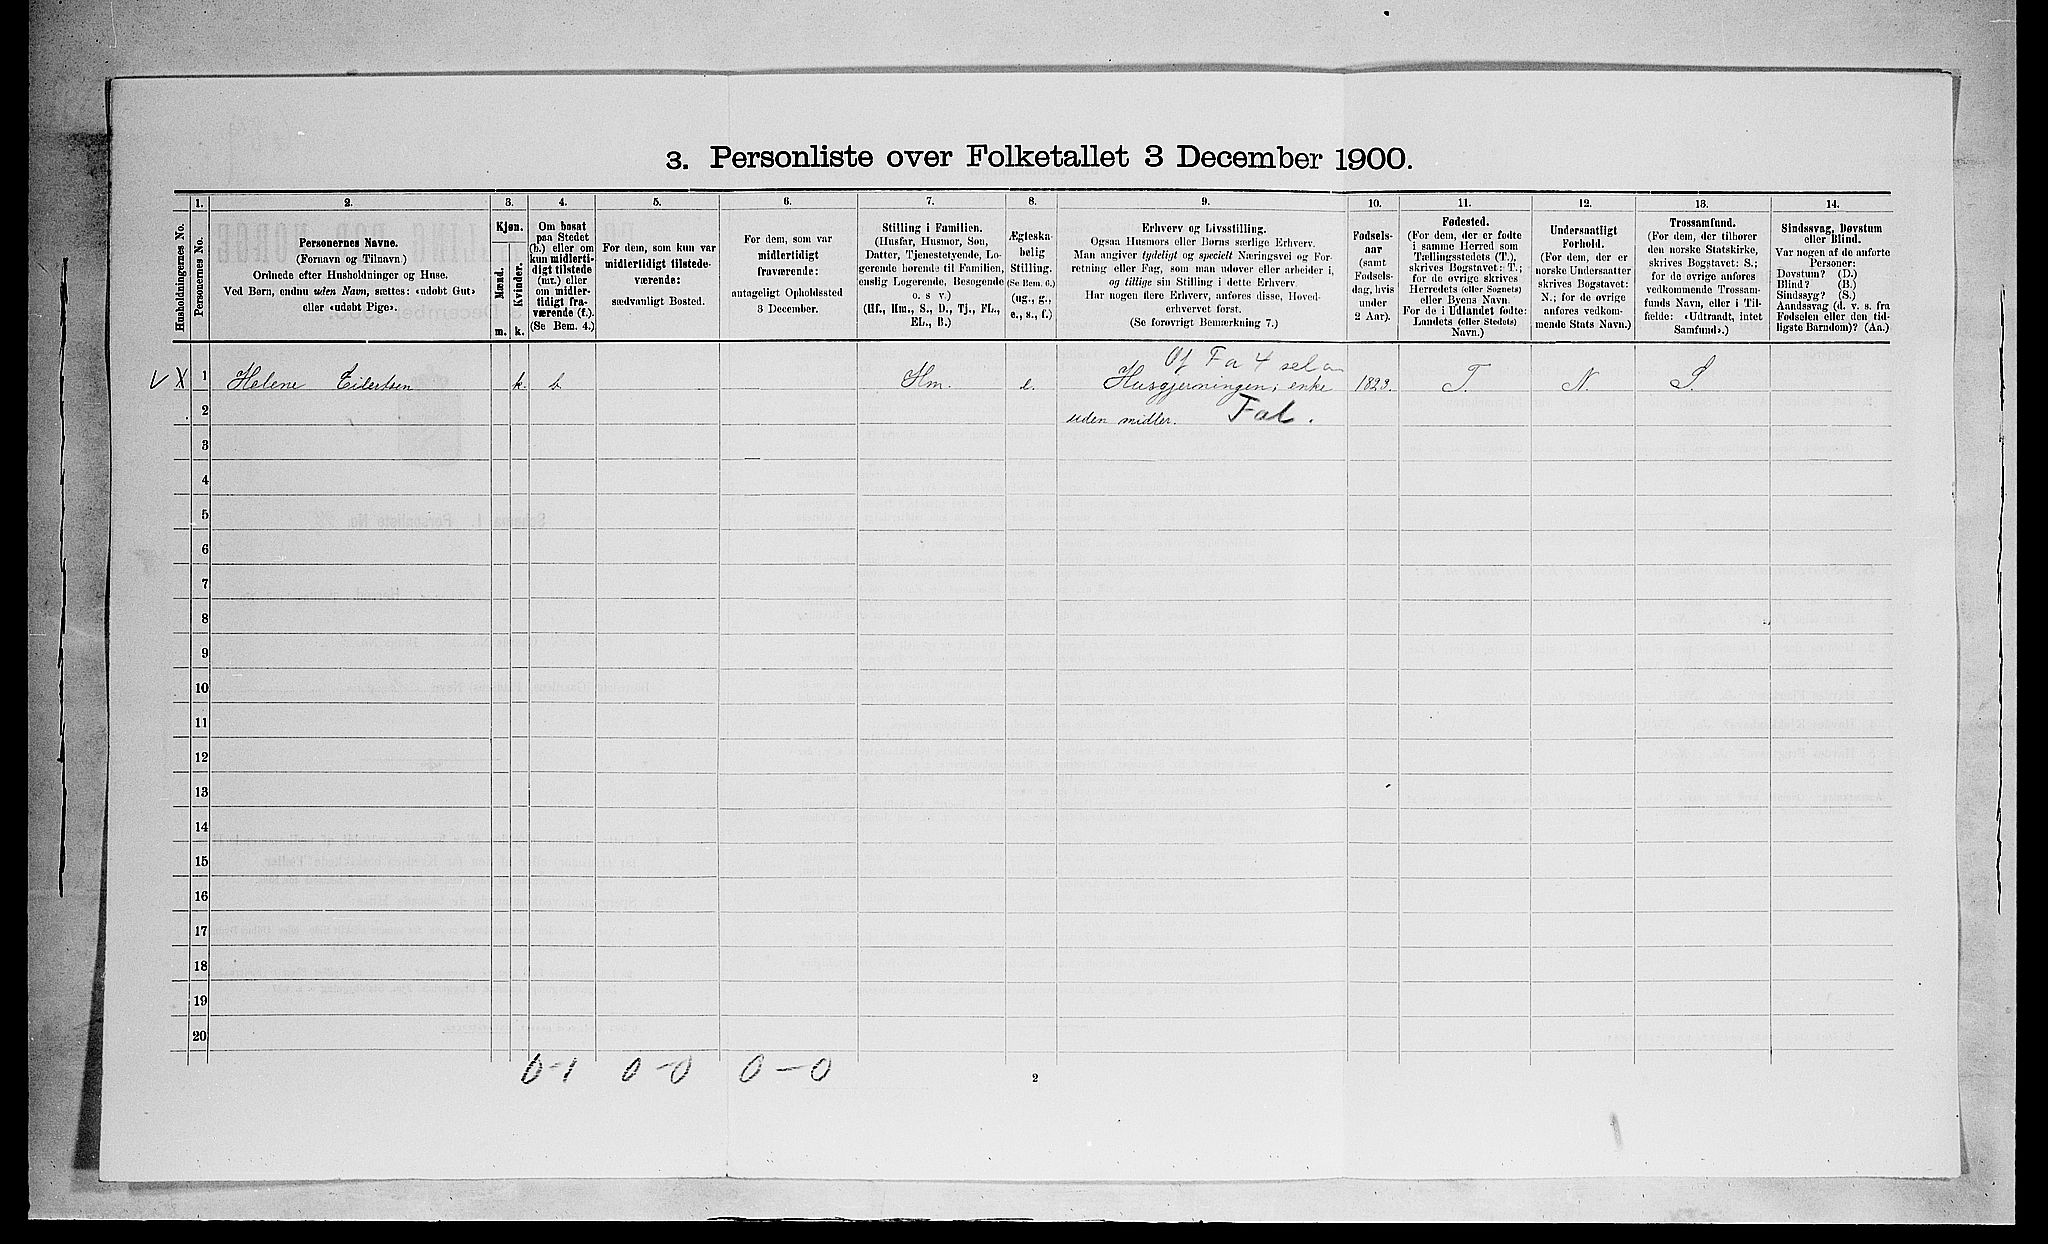 3. Personliste over Folketallet 3 December 1900.
1. 2. 3. 4. 5. 6. 7. 8. 9. 10. 11. 12. 13. 14.
Husholdningernes No.
Personernes No.
Personernes Navne.
(Fornavn og Tilnavn.)
Ordnede efter Husholdninger og Huse.
Ved Børn, endnu uden Navn, sættes: «udøbt Gut»
eller «udøbt Pige».
Kjøn.
Mænd.
Kvinder.
m. k.
Om bosat
paa Stedet
(b.) eller om
kun midlerti-
digt tilstede
(mt.) eller
om midler-
tidigt fra-
værende (f.).
(Se Bem. 4.)
For dem, som kun var
midlertidigt tilstede-
værende:
sædvanligt Bosted.
For dem, som var
midlertidigt
fraværende:
antageligt Opholdssted
3 December.
Stilling i Familien.
(Husfar, Husmor, Søn,
Datter, Tjenestetyende, Lo-
gerende hørende til Familien,
enslig Logerende, Besøgende
o. s. v.)
(Hf., Hm., S., D., Tj., FL.,
EL., B.)
Ægteska-
belig
Stilling.
(Se Bem. 6.)
(ug., g.,
e., s., f.)
Erhverv og Livsstilling.
Ogsaa Husmors eller Børns særlige Erhverv.
Man angiver tydeligt og specielt Næringsvei og For-
retning eller Fag, som man udøver eller arbeider i,
og tillige sin Stilling i dette Erhverv.
Har nogen flere Erhverv, anføres disse, Hoved-
erhvervet først.
(Se forøvrigt Bemærkning 7.)
Fødsels-
aar
(samt
Fødsels-
dag, hvis
under
2 Aar).
Fødested.
(For dem, der er fødte
i samme Herred som
Tællingsstedets (T.),
skrives Bogstavet: T.;
for de øvrige skrives
Herredets (eller Sognets)
eller Byens Navn.
For de i Udlandet fødte:
Landets (eller Stedets)
Navn.)
Undersaatligt
Forhold.
(For dem, der er
norske Undersaatter
skrives Bogstavet:
N.; for de øvrige
anføres vedkom-
mende Stats Navn.)
Trossamfund.
(For dem, der tilhører
den norske Statskirke,
skrives Bogstavet: S.;
for de øvrige anføres
vedkommende Trossam-
funds Navn, eller i Til-
fælde: «Udtraadt, intet
Samfund».)
Sindssvag, Døvstum
eller Blind.
Var nogen af de anførte
Personer:
Døvstum? (D.)
Blind? (B.)
Sindssyg? (S.)
Aandssvag (d. v. s. fra
Fødselen eller den tid-
ligste Barndom)? (Aa.)
Fa 4
V X 1 Helene Eilertsen k. b. Hm. e. Husgjerningen; enke 1823. T. N S.
2 uden midler.
3
4
5
6
7
8
9
10
11
12
13
14
15
16
17
18
19
20
0-1 0-0 0-0
2